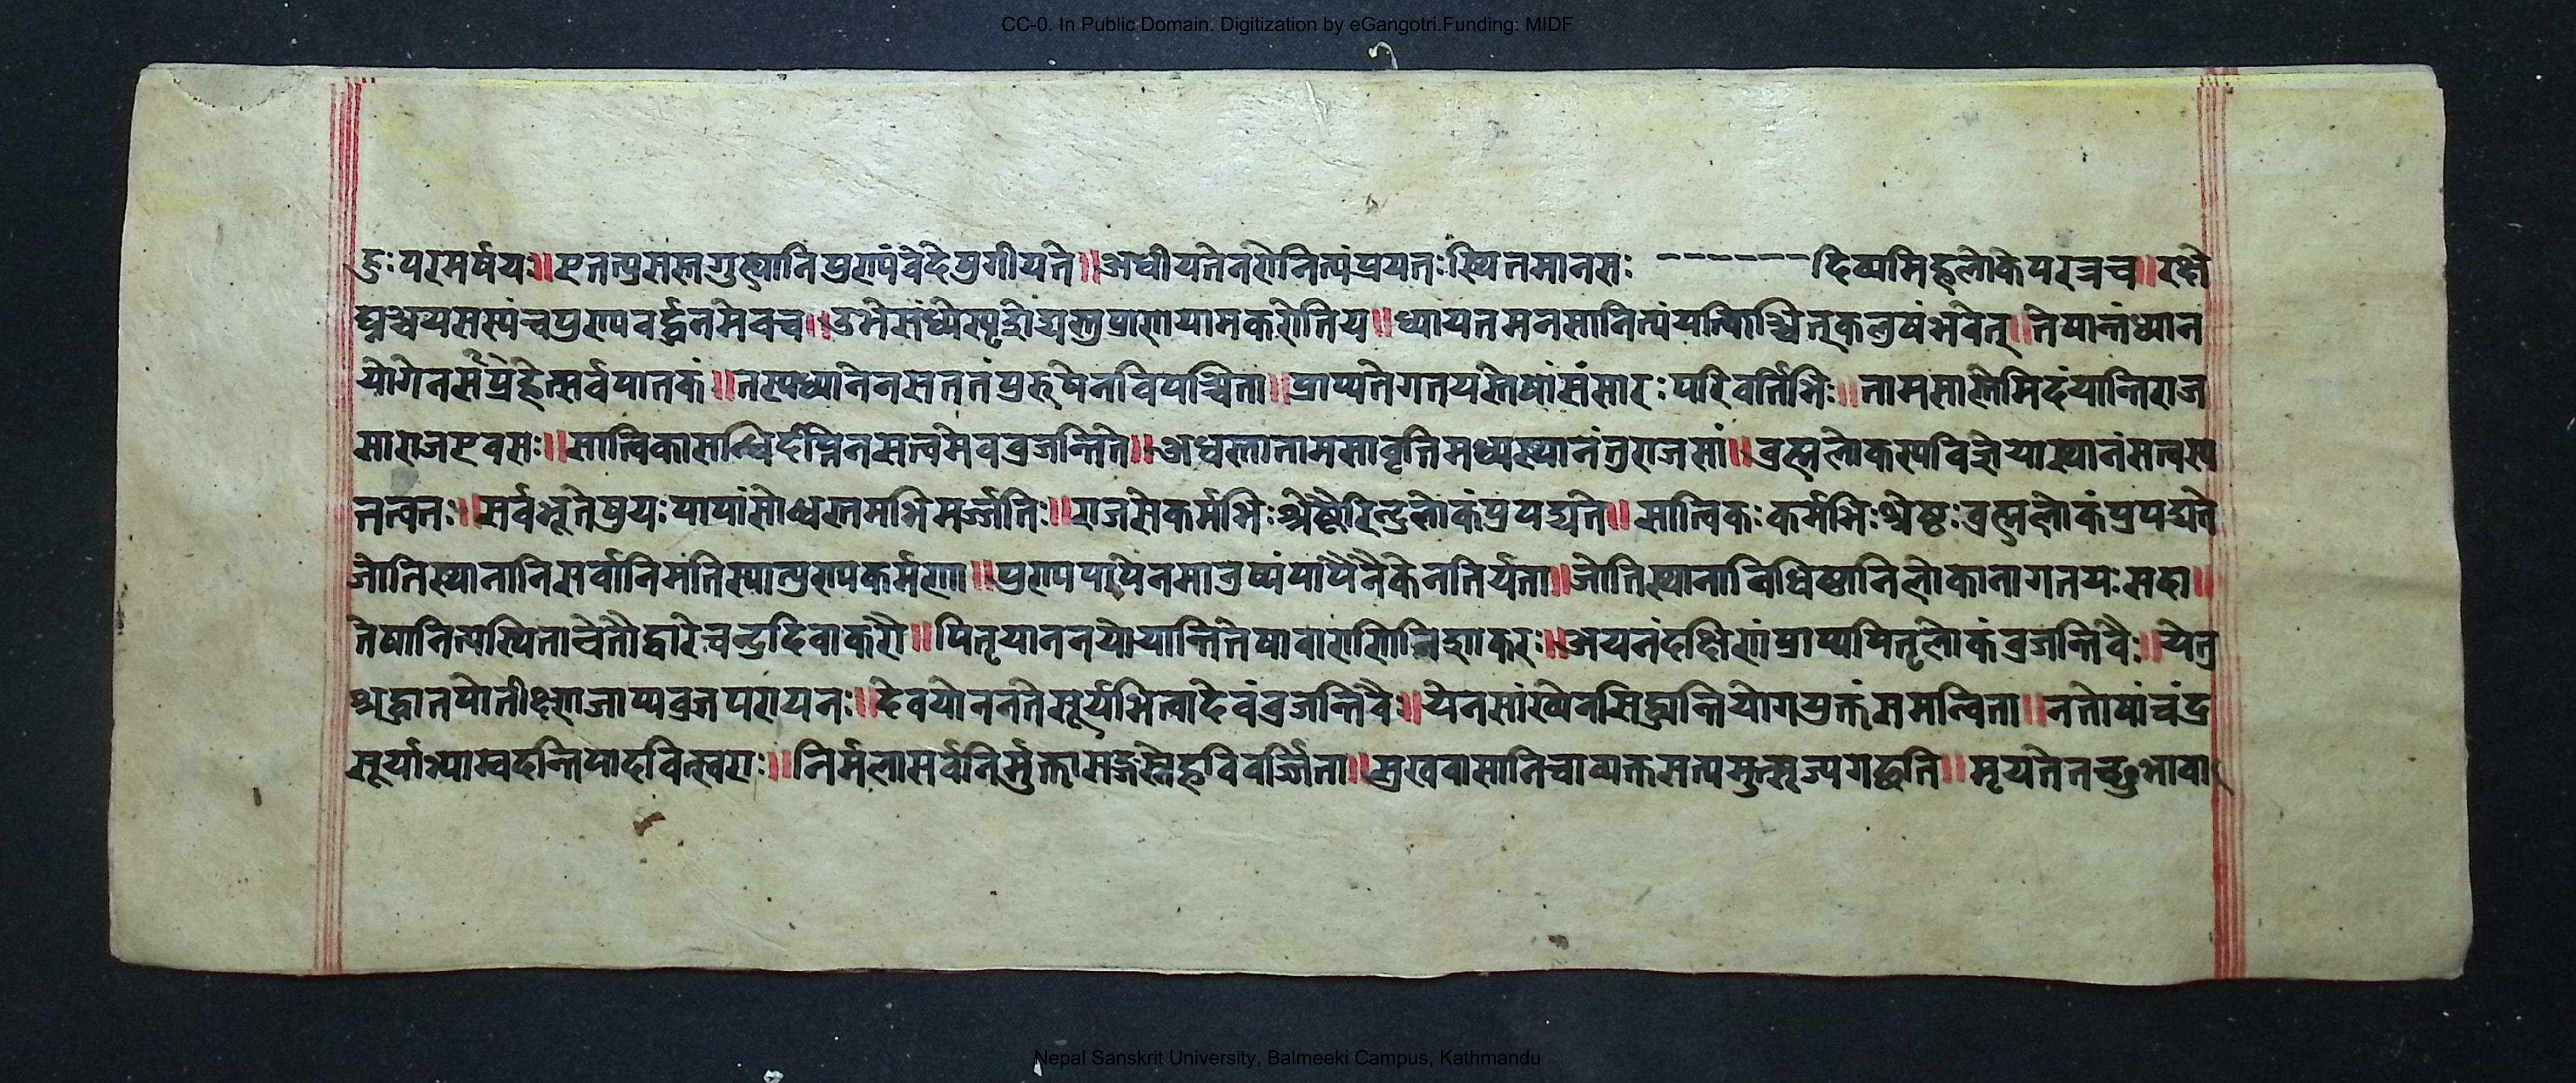 CC-0. In Public Domain. Digitization by eGangotri.Funding: MIDF
परमर्षयः॥ एतत्पुसस्तगुह्यानिपुराणंवेदेषुगीयते॥ अधीयतेनरोनित्यंप्रयतःस्थितमानसः ------- दिव्यमिहलोकेपरत्रच॥ रक्षो
पुण्यवर्द्धनमेवच॥ उभेसंध्ये प्राणायामकरोतिय॥ ध्यायतमनसानित्यंयत्किञ्चित्कलुषंभवेत्॥ तेषान्तंध्यान
योगेनसंप्रहेत्सर्वपातकं॥ तस्यध्यानेनसततंपुरुषेनविपश्चिता॥ प्राप्यतेगतयस्तेषांसंसारःपरिवर्तिभिः॥ तामसास्तेमिदंयान्तिराज
साराजएवसः॥ सात्विकास सत्वमेवव्रजन्तिते॥ अधस्तातामसावृत्तिमध्यस्थानंतुराजसां॥ ब्रह्मलोकस्यविज्ञेयास्थानंसत्वस्य
तत्वतः॥ सर्वभूतेषुयःपापांसोध्वस्तमभिमर्ज्जतिः॥ राजसेकर्मभिःश्रेष्टैरिन्द्रलोकंप्रपद्यते॥ सात्विकःकर्मभिःश्रेष्ठःब्रह्मलोकंप्रपद्यते
जोतिस्थानानिसर्वानिमंतिस्यात्पुण्यकर्मणा॥ मानुष्यंपापैनैकेनतिर्यता॥ जोतिस्थानाविधिष्ठानिलोकानागतयःसदा॥
तेषानित्यस्थिताचेतौद्वारेचन्द्रदिवाकरौ॥ पितृयाननयोयान्तितेषा अयनंदक्षिणंप्राप्यपितृलोकंव्रजन्तिवैः॥ येतु
श्रद्धातपोती परायनः॥ देवयोननतेसूर्यभित्वादेवंव्रजन्तिवैः॥ येनसांख्येनसिद्ध्यन्तियोगयुक्तंसमन्विता॥ नतोषांचंद्र
सूर्याभ्यास्वदन्तिपादवित्स्वराः॥ निर्मलासर्वनिर्मुक्तासङ्गस्नेहविवर्ज्जिता॥ सुखवासानिचाव्यक्तसत्यमुत्सृज्यगछति॥ मृयतेनच्छुभावा
Nepal Sanskrit University, Balmeeki Campus, Kathmandu